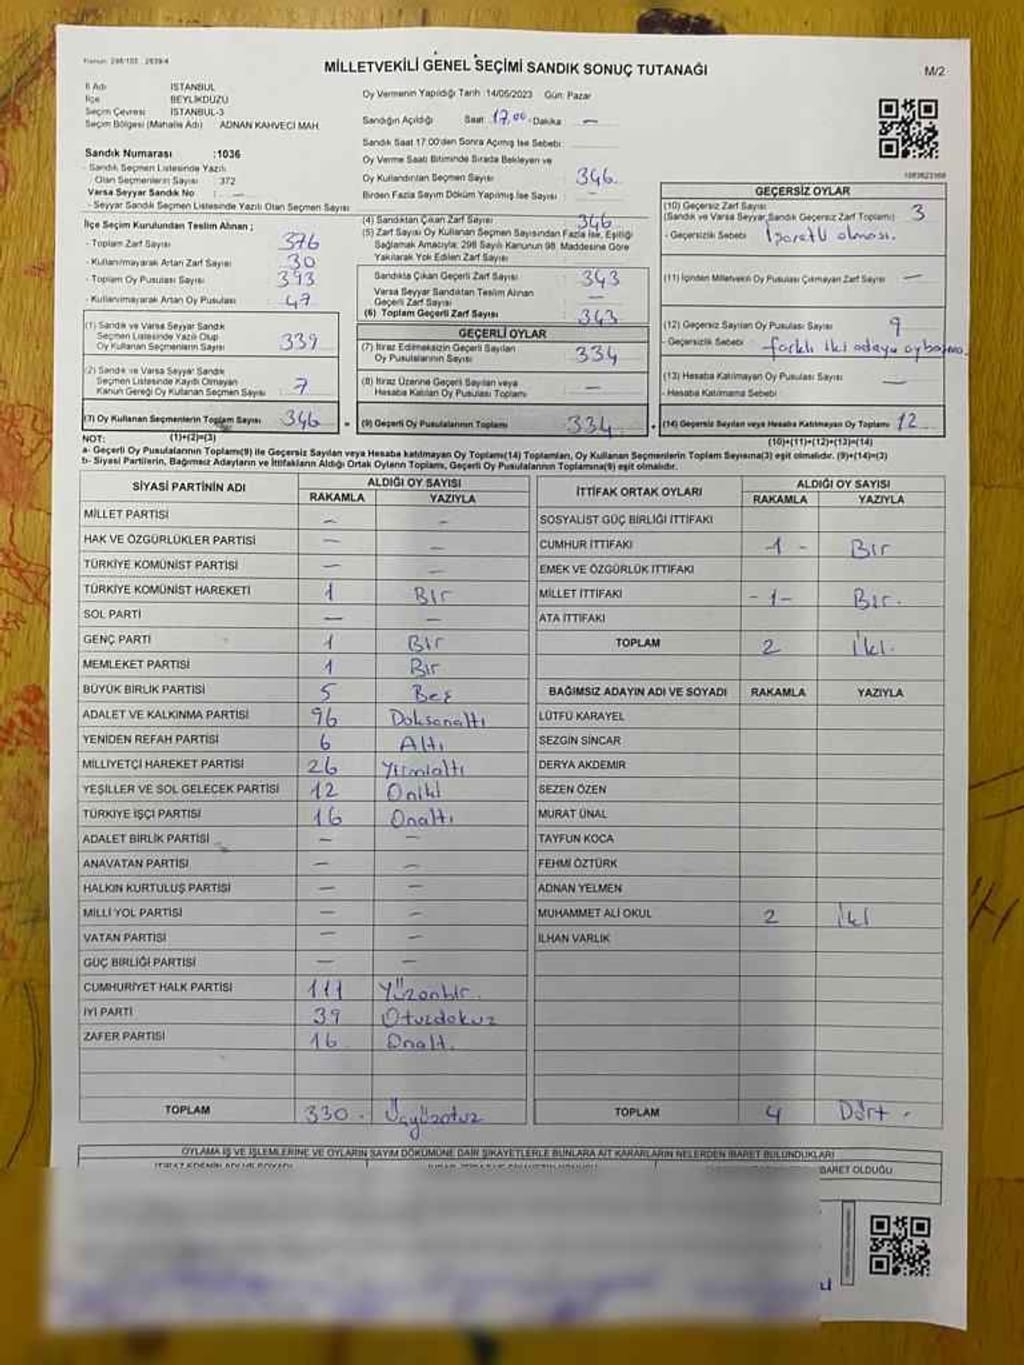 Kanun: 298/105 , 2839/4
MİLLETVEKİLİ GENEL SEÇİMİ SANDIK SONUÇ TUTANAĞI
M/2
İl Adı İSTANBUL
İlçe BEYLİKDÜZÜ
Seçim Çevresi İSTANBUL-3
Seçim Bölgesi (Mahalle Adı) ADNAN KAHVECİ MAH.
Sandık Numarası :1036
- Sandık Seçmen Listesinde Yazılı
Olan Seçmenlerin Sayısı : 372
Varsa Seyyar Sandık No : —
- Seyyar Sandık Seçmen Listesinde Yazılı Olan Seçmen Sayısı
İlçe Seçim Kurulundan Teslim Alınan ;
- Toplam Zarf Sayısı 376
- Kullanılmayarak Artan Zarf Sayısı 30
- Toplam Oy Pusulası Sayısı 393
- Kullanılmayarak Artan Oy Pusulası 47
(1) Sandık ve Varsa Seyyar Sandık
Seçmen Listesinde Yazılı Olup
Oy Kullanan Seçmenlerin Sayısı 339
(2) Sandık ve Varsa Seyyar Sandık
Seçmen Listesinde Kayıtlı Olmayan
Kanun Gereği Oy Kullanan Seçmen Sayısı 7
(3) Oy Kullanan Seçmenlerin Toplam Sayısı 346
(1)+(2)=(3)
Oy Vermenin Yapıldığı Tarih :14/05/2023 Gün: Pazar
Sandığın Açıldığı Saat: 17.00 - Dakika —
Sandık Saat 17:00'den Sonra Açılmış İse Sebebi:
Oy Verme Saati Bitiminde Sırada Bekleyen ve
Oy Kullandırılan Seçmen Sayısı 346
Birden Fazla Sayım Döküm Yapılmış İse Sayısı : —
(4) Sandıktan Çıkan Zarf Sayısı 346
(5) Zarf Sayısı Oy Kullanan Seçmen Sayısından Fazla İse, Eşitliği
Sağlamak Amacıyla; 298 Sayılı Kanunun 98. Maddesine Göre
Yakılarak Yok Edilen Zarf Sayısı
Sandıkta Çıkan Geçerli Zarf Sayısı : 343
Varsa Seyyar Sandıktan Teslim Alınan
Geçerli Zarf Sayısı —
(6) Toplam Geçerli Zarf Sayısı : 343
GEÇERLİ OYLAR
(7) İtiraz Edilmeksizin Geçerli Sayılan
Oy Pusulalarının Sayısı 334
(8) İtiraz Üzerine Geçerli Sayılan veya
Hesaba Katılan Oy Pusulası Toplamı —
= (9) Geçerli Oy Pusulalarının Toplamı 334
1083823368
GEÇERSİZ OYLAR
(10) Geçersiz Zarf Sayısı 3
(Sandık ve Varsa Seyyar Sandık Geçersiz Zarf Toplamı)
- Geçersizlik Sebebi İşaretli olması.
(11) İçinden Milletvekili Oy Pusulası Çıkmayan Zarf Sayısı —
(12) Geçersiz Sayılan Oy Pusulası Sayısı 9
- Geçersizlik Sebebi farklı iki adaya oy basma.
(13) Hesaba Katılmayan Oy Pusulası Sayısı —
- Hesaba Katılmama Sebebi
+ (14) Geçersiz Sayılan veya Hesaba Katılmayan Oy Toplamı 12
(10)+(11)+(12)+(13)=(14)
NOT:
a- Geçerli Oy Pusulasının Toplamı(9) ile Geçersiz Sayılan veya Hesaba katılmayan Oy Toplamı(14) Toplamları, Oy Kullanan Seçmenlerin Toplam Sayısına(3) eşit olmalıdır. (9)+(14)=(3)
b- Siyasi Partilerin, Bağımsız Adayların ve İttifakların Aldığı Ortak Oyların Toplamı, Geçerli Oy Pusulalarının Toplamına(9) eşit olmalıdır.
SİYASİ PARTİNİN ADI ALDIĞI OY SAYISI
RAKAMLA YAZIYLA
MİLLET PARTİSİ — —
HAK VE ÖZGÜRLÜKLER PARTİSİ — —
TÜRKİYE KOMÜNİST PARTİSİ — —
TÜRKİYE KOMÜNİST HAREKETİ 1 Bir
SOL PARTİ — —
GENÇ PARTİ 1 Bir
MEMLEKET PARTİSİ 1 Bir
BÜYÜK BİRLİK PARTİSİ 5 Beş
ADALET VE KALKINMA PARTİSİ 96 Doksanaltı
YENİDEN REFAH PARTİSİ 6 Altı
MİLLİYETÇİ HAREKET PARTİSİ 26 Yirmialtı
YEŞİLLER VE SOL GELECEK PARTİSİ 12 Oniki
TÜRKİYE İŞÇİ PARTİSİ 16 Onaltı
ADALET BİRLİK PARTİSİ — —
ANAVATAN PARTİSİ — —
HALKIN KURTULUŞ PARTİSİ — —
MİLLİ YOL PARTİSİ — —
VATAN PARTİSİ — —
GÜÇ BİRLİĞİ PARTİSİ — —
CUMHURİYET HALK PARTİSİ 111 Yüzonbir.
İYİ PARTİ 39 Otuzdokuz
ZAFER PARTİSİ 16 Onaltı
TOPLAM 330 . Üçyüzotuz
İTTİFAK ORTAK OYLARI ALDIĞI OY SAYISI
RAKAMLA YAZIYLA
SOSYALİST GÜÇ BİRLİĞİ İTTİFAKI
CUMHUR İTTİFAKI -1- Bir
EMEK VE ÖZGÜRLÜK İTTİFAKI
MİLLET İTTİFAKI -1- Bir.
ATA İTTİFAKI
TOPLAM 2 İki.
BAĞIMSIZ ADAYIN ADI VE SOYADI RAKAMLA YAZIYLA
LÜTFÜ KARAYEL
SEZGİN SİNCAR
DERYA AKDEMİR
SEZEN ÖZEN
MURAT ÜNAL
TAYFUN KOCA
FEHMİ ÖZTÜRK
ADNAN YELMEN
MUHAMMET ALİ OKUL 2 İki
İLHAN VARLIK
TOPLAM 4 Dört .
OYLAMA İŞ VE İŞLEMLERİNE VE OYLARIN SAYIM DÖKÜMÜNE DAİR ŞİKAYETLERLE BUNLARA AİT KARARLARIN NELERDEN İBARET BULUNDUKLARI
İTİRAZ EDENİN ADI VE SOYADI
İBARET OLDUĞU